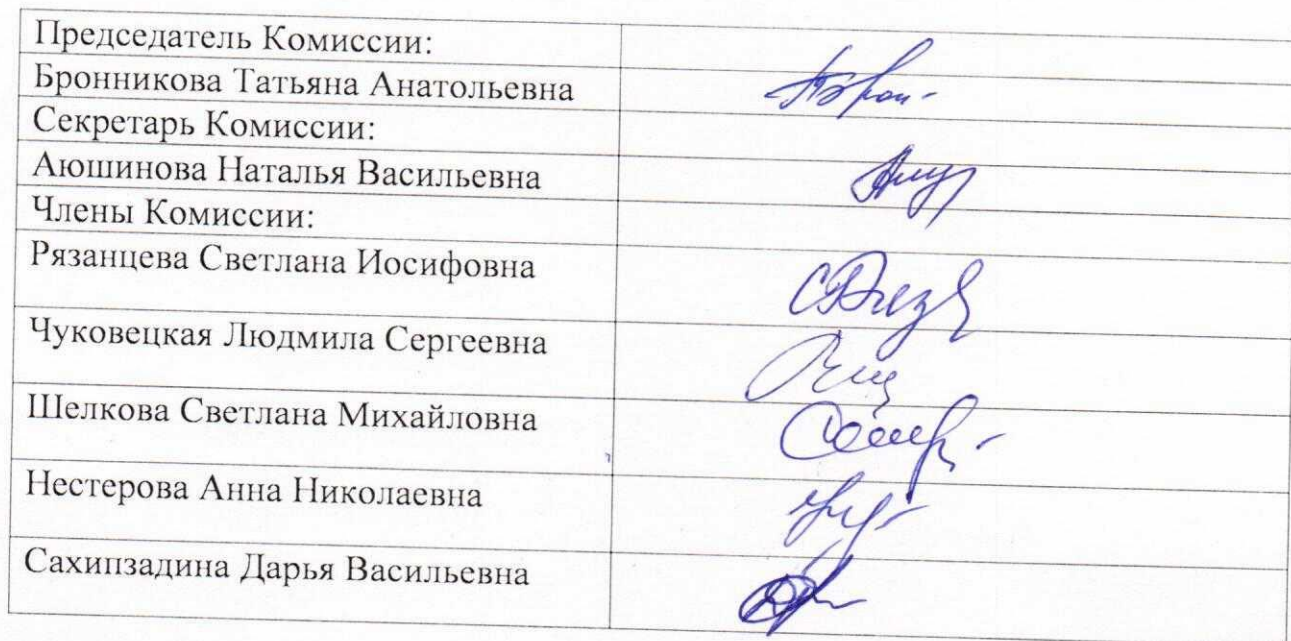 Председатель Комиссии:
Бронникова Татьяна Анатольевна
Секретарь Комиссии:
Аюшинова Наталья Васильевна
Члены Комиссии:
Рязанцева Светлана Иосифовна
Чуковецкая Людмила Сергеевна
Шелкова Светлана Михайловна
Нестерова Анна Николаевна
Сахипзадина Дарья Васильевна